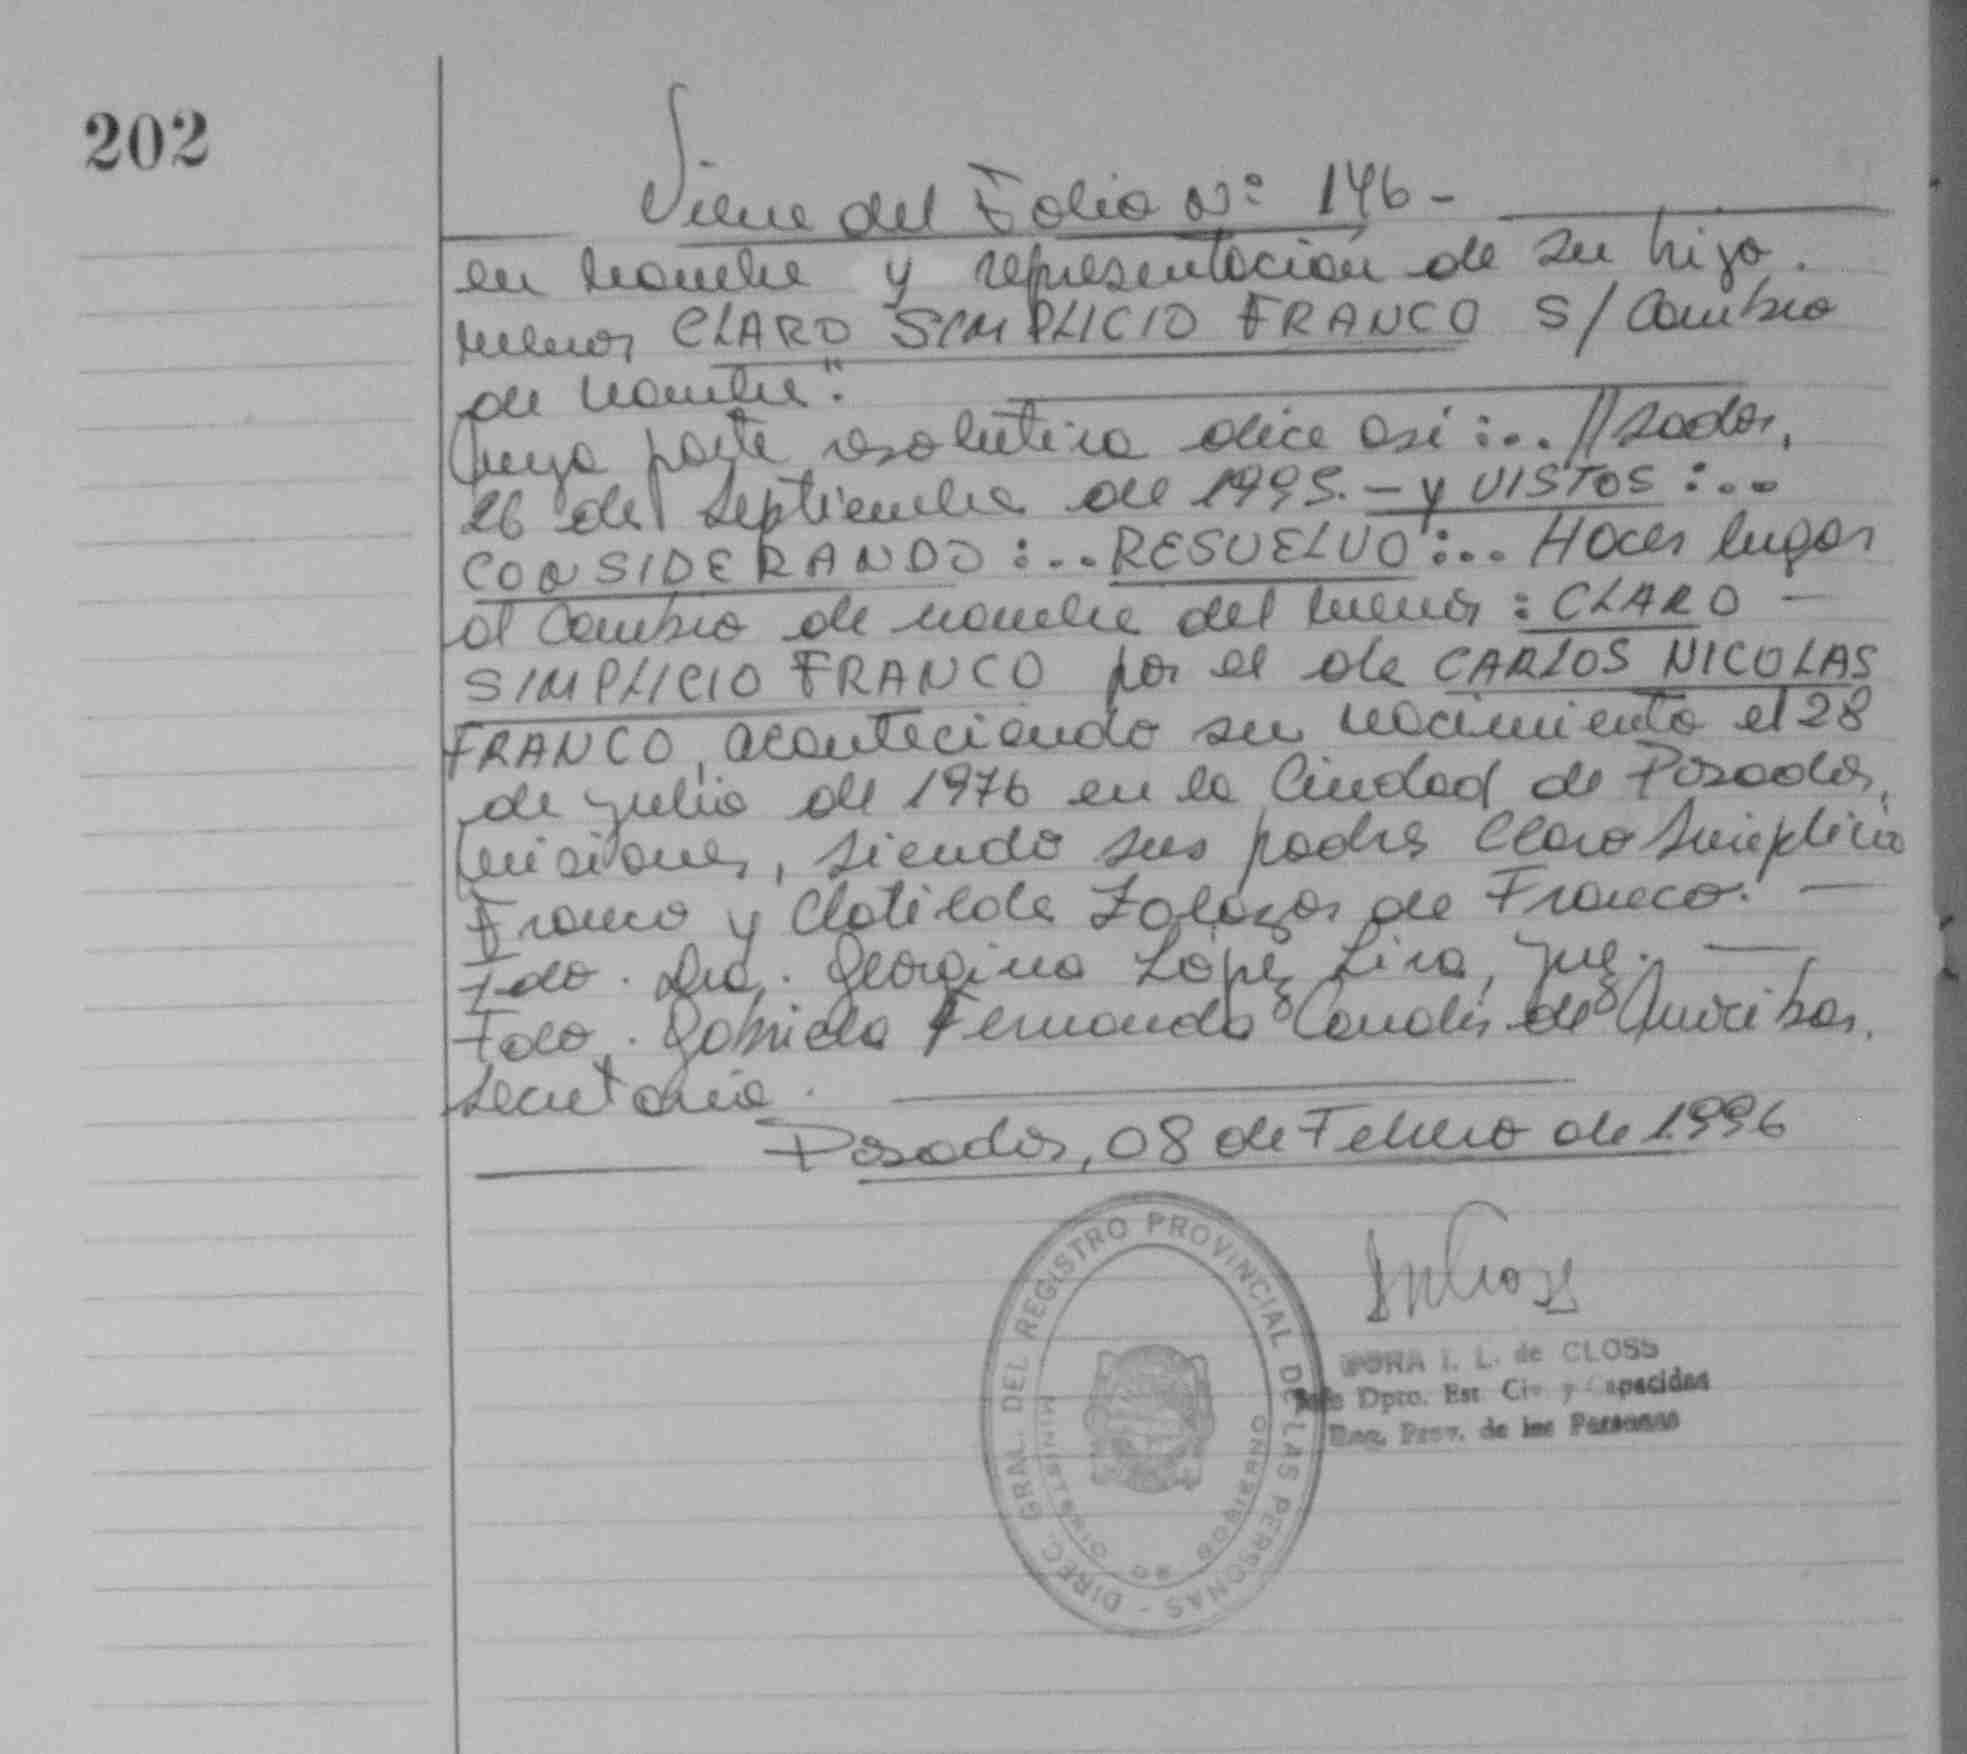 202
Viene del Folio Nº 146-
en nombre y representación de su hijo
menor CLARO SIMPLICIO FRANCO S/ Cambio
de nombre".
Cuya parte resolutiva dice así:... //sadas,
26 de Septiembre de 1995.- y VISTOS:...
CONSIDERANDO:... RESUELVO:... Hacer lugar
al Cambio de nombre del menor: CLARO —
SIMPLICIO FRANCO por el de CARLOS NICOLAS
FRANCO, aconteciendo su nacimiento el 28
de julio de 1976 en la Ciudad de Posadas,
Misiones, siendo sus padres Claro Simplicio
Franco y Clotilde Zalazar de Franco. —
Fdo. Dra. Georgina López Lira, Juez. —
Fdo. Gabriela Fernanda Canalis de
Secretaria.
Posadas, 08 de Febrero de 1996
DIREC. GRAL. DEL REGISTRO PROVINCIAL DE LAS PERSONAS -
MINISTERIO DE GOBIERNO
DORA I. L. de CLOSS
Jefe Dpto. Est. Civ. y Capacidad
Reg. Prov. de las Personas